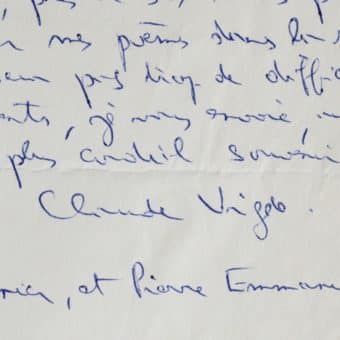 mes poèmes dans la
pas trop de diffi
, je vous envoie,
plus cordial souvenir
Claude Vigée.
, et Pierre Emmanu